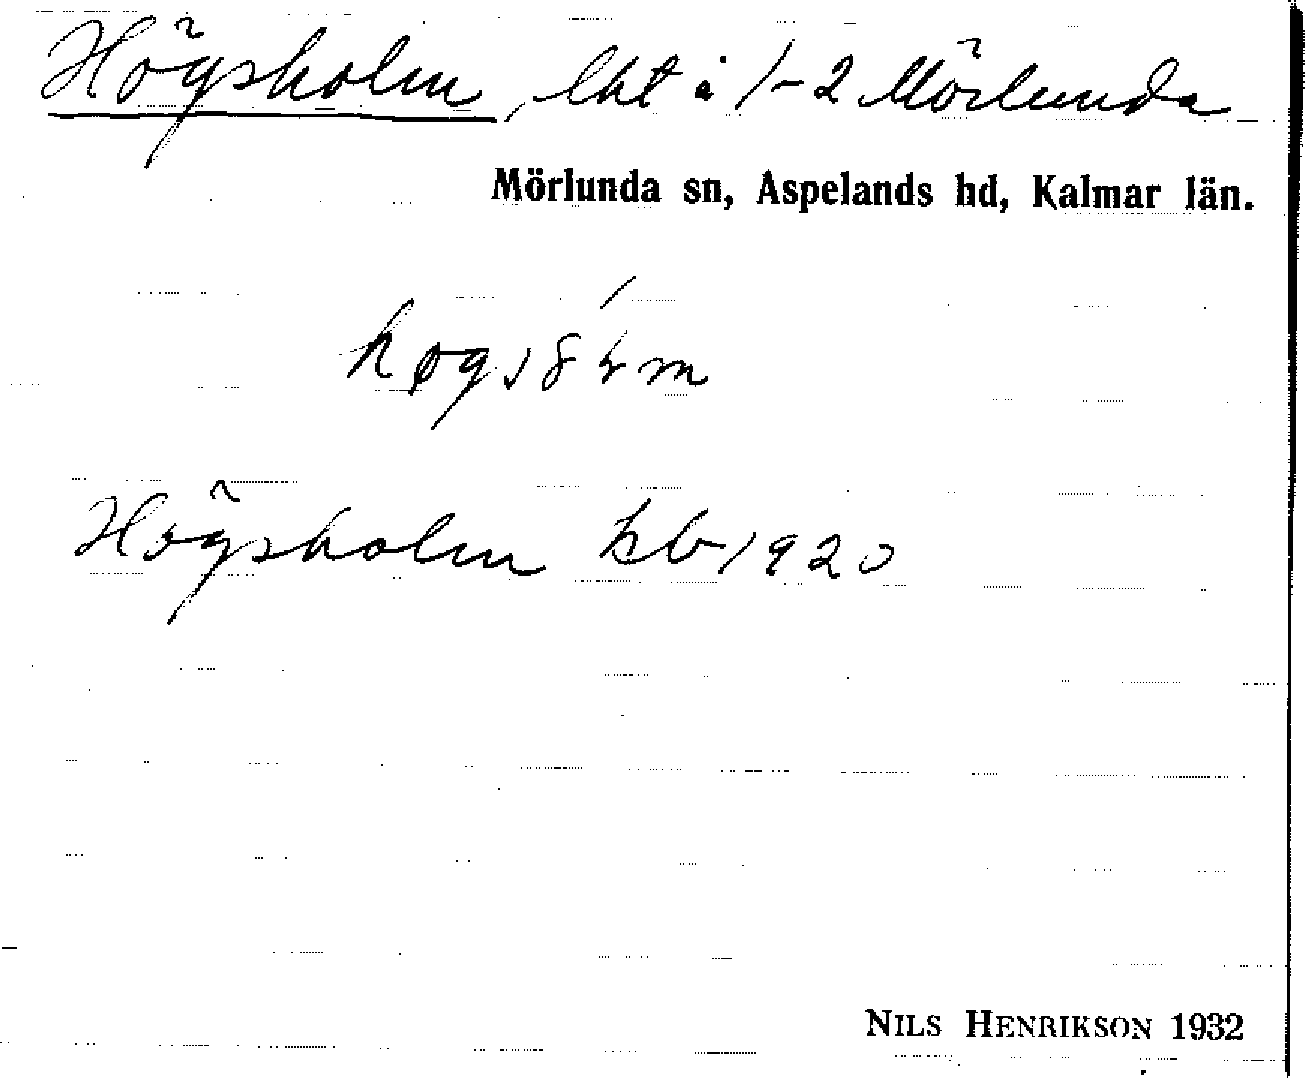 Högsholm, lht å 1-2 Mörlunda
Mörlunda sn, Aspelands hd, Kalmar län.
Högsholm kb 1920
NILS HENRIKSON 1932